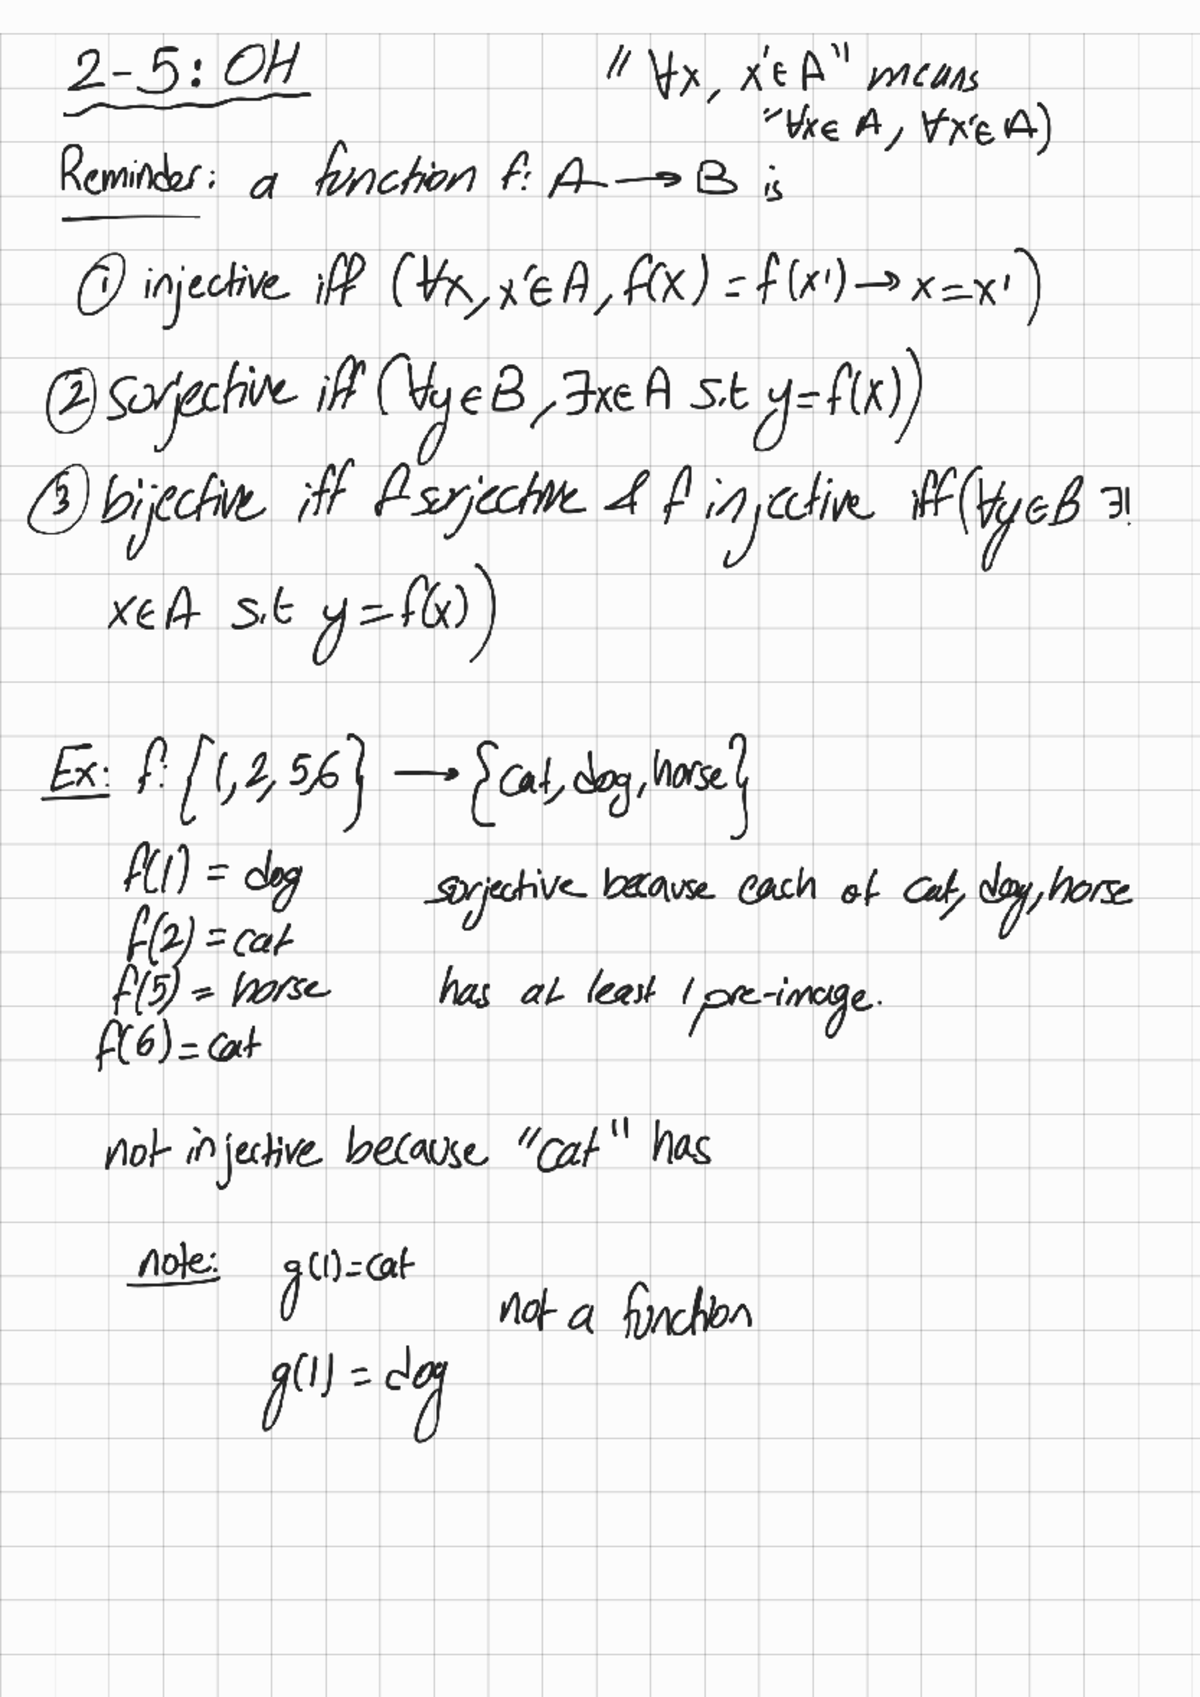 2-5: OH
"∀x, x'∈A" means
"∀x∈A, ∀x'∈A)
Reminder: a function f: A→B is
① injective iff (∀x, x'∈A, f(x) = f(x') → x = x')
② surjective iff (∀y∈B, ∃x∈A s.t y=f(x))
③ bijective iff f surjective & f injective iff (∀y∈B ∃!
x∈A s.t y=f(x))
Ex: f: {1, 2, 5, 6} → {cat, dog, horse}
f(1) = dog
surjective because each of cat, dog, horse
f(2) = cat
f(5) = horse
has at least 1 pre-image.
f(6) = cat
not injective because "cat" has
note: g(1)=cat
not a function
g(1) = dog